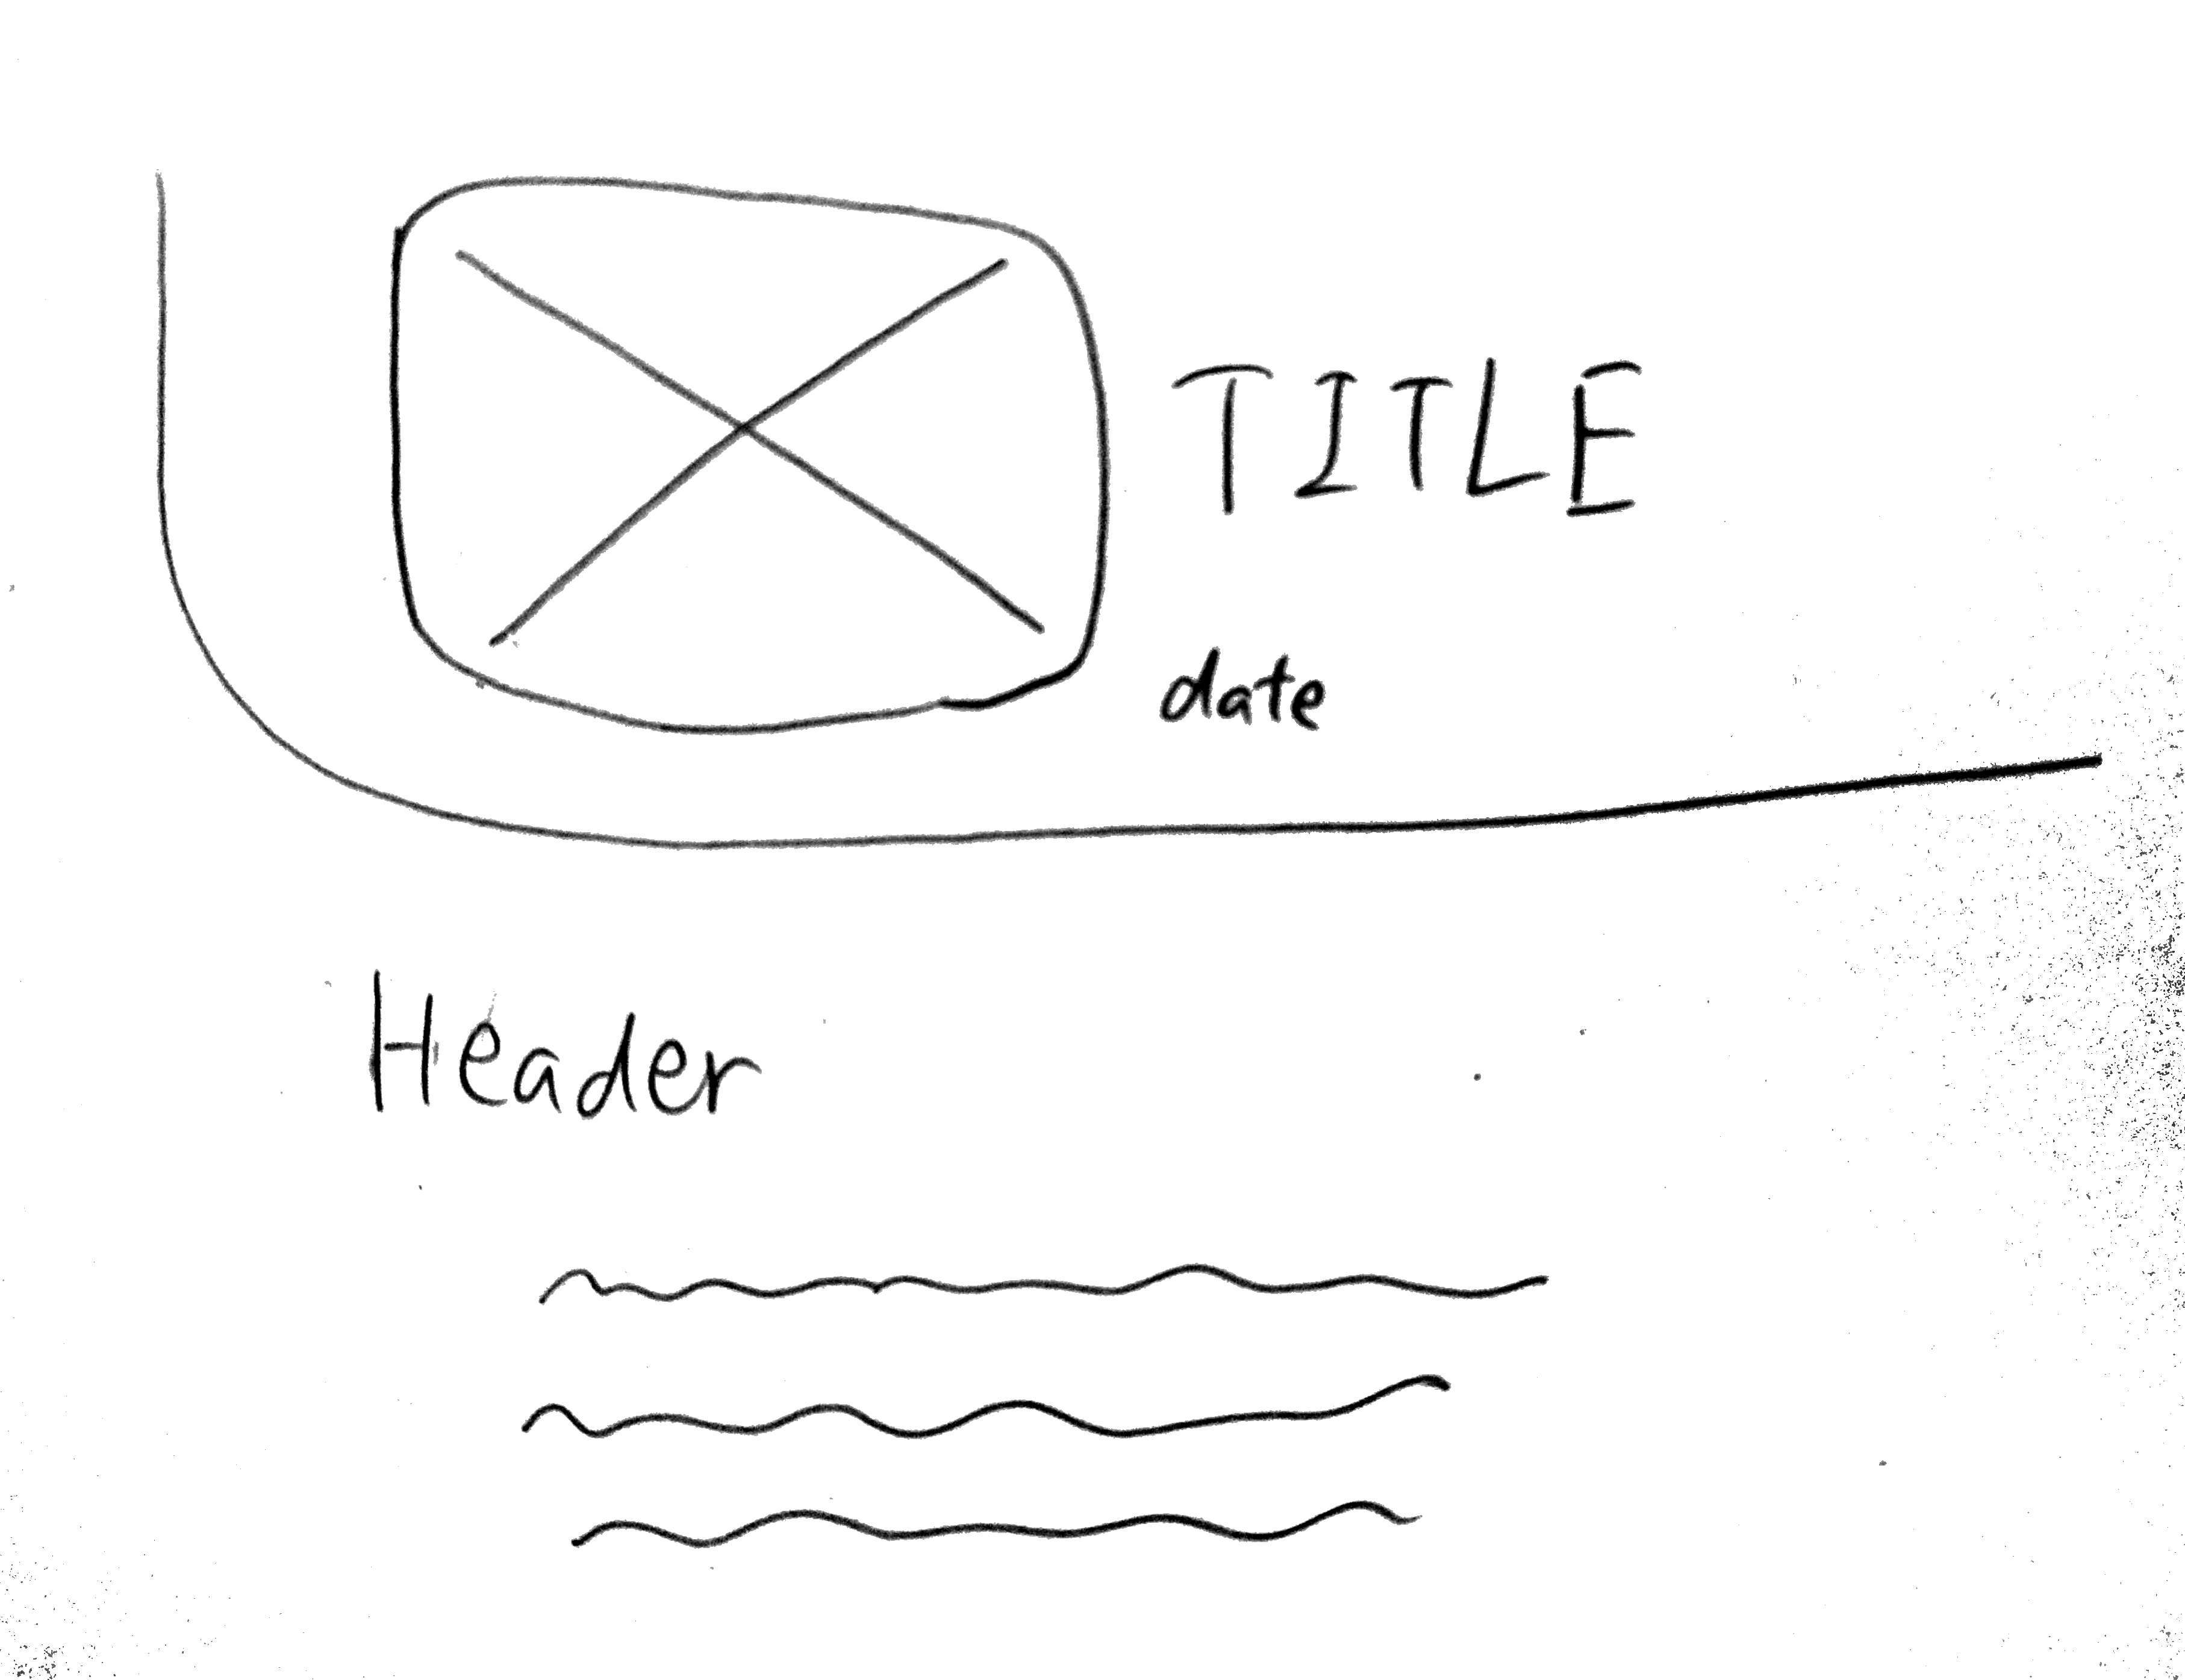 TITLE
date
Header